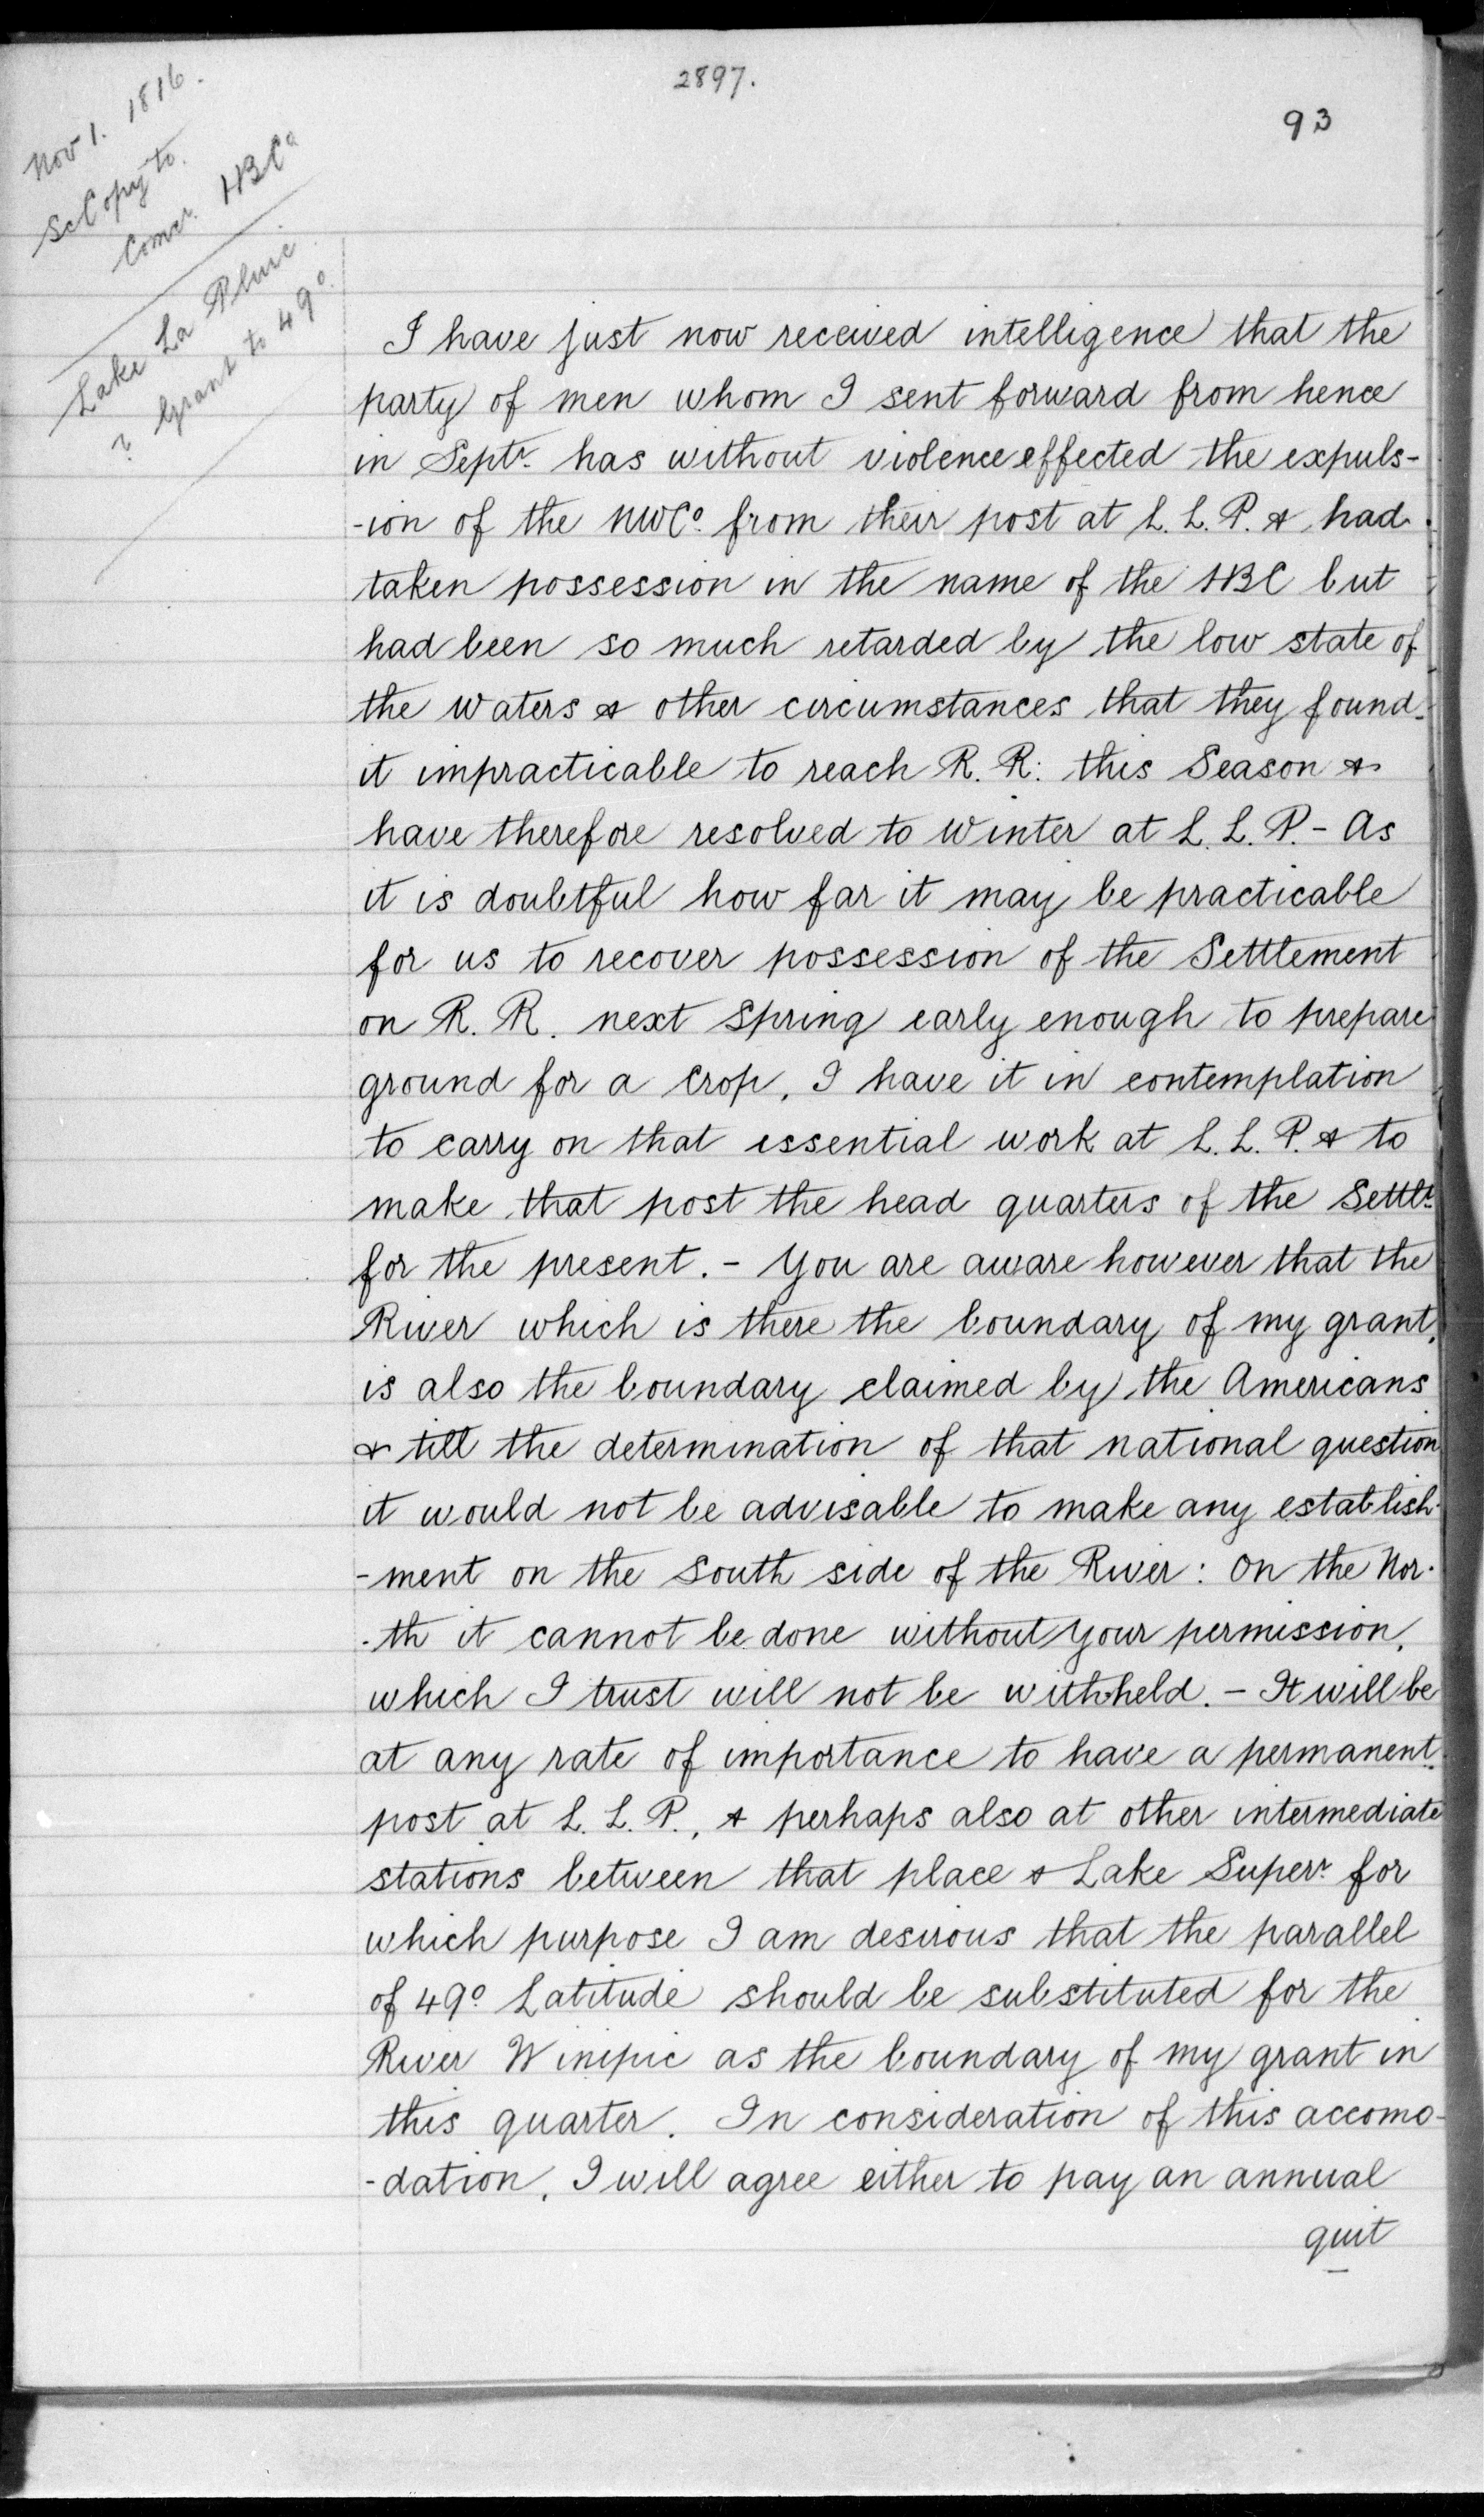 2897.
93
Nov 1. 1816.
Sc Copy to.
Comee. HBCo
Lake La Pluie
? Grant to 49o.
I have just now received intelligence that the
party of men whom I sent forward from hence
in Septr. has without violence effected the expuls-
-ion of the NWCo. from their post at L. L. P. & had
taken possession in the name of the HBC but
had been so much retarded by the low state of
the waters & other circumstances that they found
it impracticable to reach R. R: this Season &
have therefore resolved to Winter at L. L. P. - As
it is doubtful how far it may be practicable
for us to recover possession of the Settlement
on R. R. next Spring early enough to prepare
ground for a Crop, I have it in contemplation
to carry on that essential work at L. L. P. & to
make that post the head quarters of the Settlt.
for the present. - You are aware however that the
River which is there the boundary of my grant,
is also the boundary claimed by the Americans
& till the determination of that national question
it would not be advisable to make any establish-
-ment on the South side of the River: On the Nor-
-th it cannot be done without your permission,
which I trust will not be withheld. - It will be
at any rate of importance to have a permanent
post at L. L. P., & perhaps also at other intermediate
stations between that place & Lake Superr. for
which purpose I am desirous that the parallel
of 49o Latitude should be substituted for the
River Winipic as the boundary of my grant in
this quarter. In consideration of this accomo-
-dation, I will agree either to pay an annual
quit